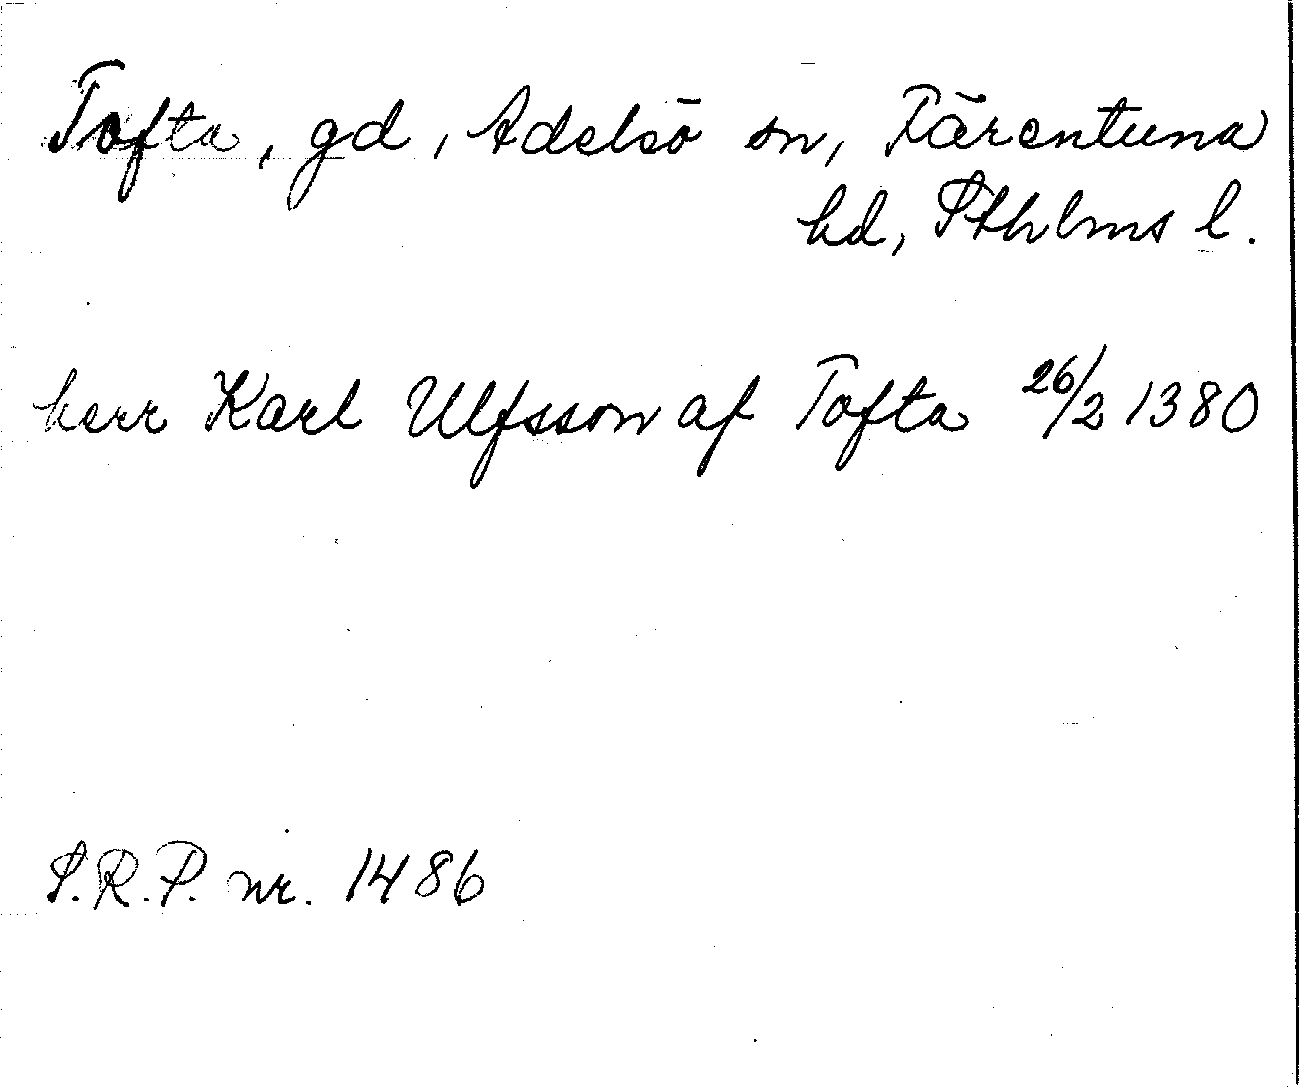 Tofta, gd, Adelsö sn, Färentuna
hd, Sthlms l.
herr Karl Ulfsson af Tofta 26/2 1380
S.R.P. nr. 1486